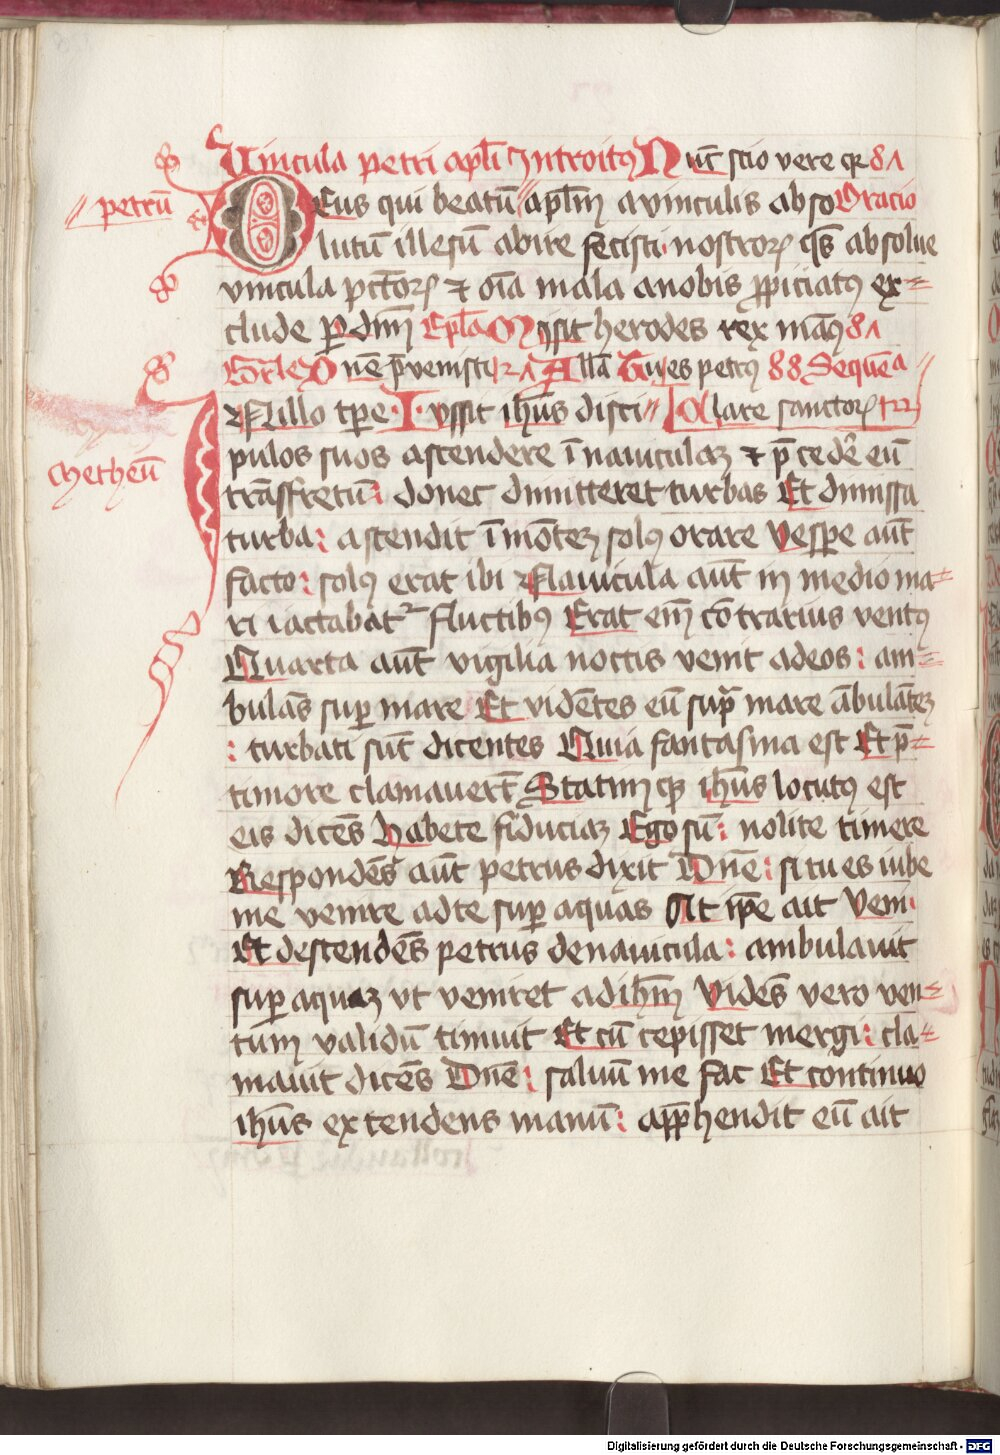 Uincula petri apl̄i Introitꝰ Nūc scio vere qꝛ 81
// petrū
Deus qui beatū // apl̄m a vinculis abso Oracio
lutū illesū abire fecisti nostroꝝ q̄s absolue
vincula pctōꝝ ⁊ oīa mala anobis ꝓpiciatꝰ ex=
clude p dnm̄ Epl̄a Misit herodes rex manꝰ 81
Gr̄le One p̄venisti 21 Alla Gujes petrꝰ 88 Sequēa
In illo tp̄e · Iussit ihūs disci // Clare sanctoꝝ
Metheū
pulos suos ascendere ī nauiculaꝫ ⁊ p̄cedē eū
trāsfretū : donec dimitteret turbas Et dimissa
turba : ascendit ī mōteꝫ solꝰ orare Vespe aūt
facto : solꝰ erat ibi Nauicula aūt in medio ma=
ri iactabatᷣ fluctibꝰ Erat em̄ cōtrarius ventꝰ
Quarta aūt vigilia noctis venit adeos : am=
bulās suꝑ mare Et vidētes eū supᷓ mare ābulāteꝫ
: turbati sūt dicentes Quia fantasma est Et p̄=
timore clamauerūt Statimqꝫ ihūs locutꝰ est
eis dicēs Habete fiduciaꝫ Ego sū : nolite timere
Respondēs aūt petrus dixit Dn̄e : si tu es iube
me venire adte suꝑ aquas At ip̄e ait Veni ·
Et descendēs petrus denauicula : ambulauit
suꝑ aquaꝫ vt veniret adihm̄ Vidēs vero ven=
tum validū timuit Et cū cepisset mergi : cla=
mauit dicēs Dn̄e : saluū me fac Et continuo
ihūs extendens manū : apꝑhendit eū ait
Digitalisierung gefördert durch die Deutsche Forschungsgemeinschaft - DFG